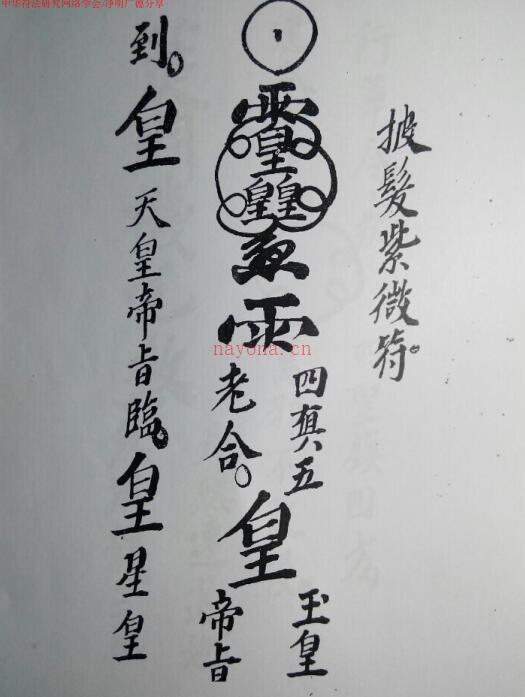 中华符法研究网络学会/净明广德分享
披髮紫微符。
雨
四真五
老合。
皇
玉皇
帝㫖
到。
皇
天皇帝㫖臨。
皇
星皇
nayona.cn